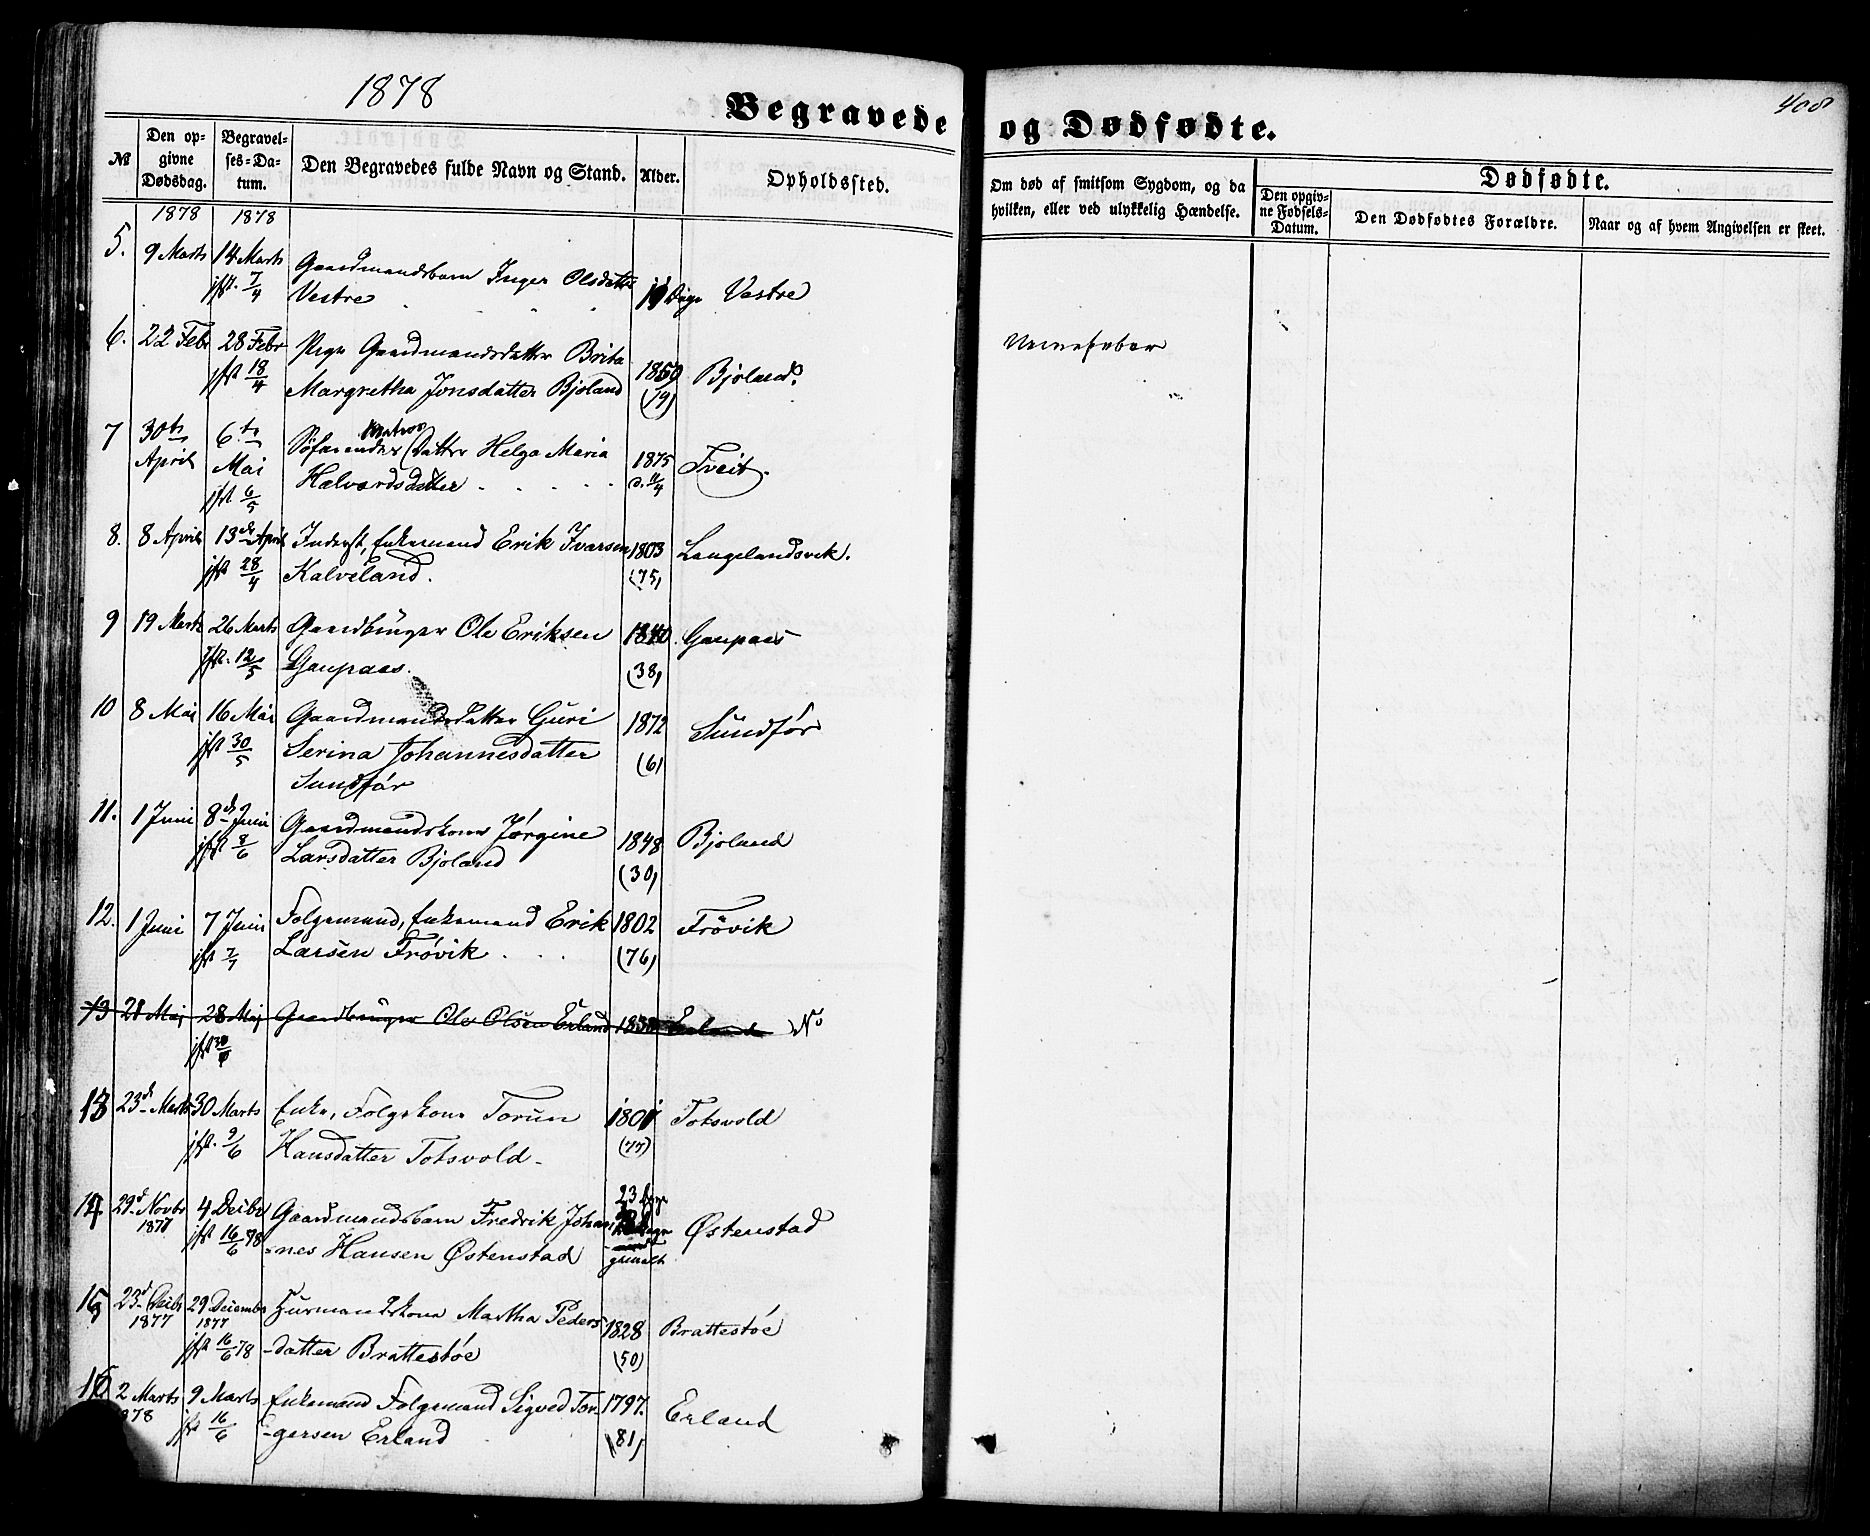 1878
Begravede og Dødfødte.
408
№
Den opgivne Dødsdag.
Begravelses-Datum.
Den Begravedes fulde Navn og Stand.
Alder.
Opholdssted.
Om død af smitsom Sygdom, og da hvilken, eller ved ulykkelig Hændelse.
Dødfødte.
Den opgivne Fødsels-Datum.
Den Dødfødtes Forældre.
Naar og af hvem Angivelsen er skeet.
1878 1878
5. 9 Marts 14 Marts Gaardmandsbarn Inger Olsdatter
jft. 7/4 Vestre 11 Dage Vestre
6. 22 Febr 28 Febr Pige Gaardmandsdatter Brita
jft 18/4 Margretha Jonsdatter Bjoland 1859 (19) Bjoland. Nervefeber
7 30te April 6te Mai Søfarendes (Matros) Datter Helga Maria
jft 6/5 Halvardsdatter 1875 d. 11/4 Tveit.
8. 8 April 13de April Inderst, Enkemand Erik Ivarsen 1803 Langelandsvik.
jft 28/4 Kalveland. (75)
9 19 Marts 26 Marts Gaardbruger Ole Eriksen 1840. Gaupaas
jft. 12/5 Gaupaas. (38)
10 8 Mai 16 Mai Gaardmandsdatter Guri 1872 Sundfør
jft 30/5 Serina Johannesdatter (6)
Sundfør
11. 1 Juni 8de Juni Gaardmandskone Jørgine 1848 Bjoland
jft 8/6 Larsdatter Bjoland (30)
12. 1 Juni 7 Juni Folgemand, Enkemand Erik 1802 Frövik
jft 7/7 Larsen Frøvik (76)
13 21 Mai 28 Mai Gaardbruger Ole Olsen Erland Erland No
13 23d Marts 30 Marts Enke, Folgekone Torun 1801 Totsvold
jft. 9/6 Hansdatter Totsvold (77)
14 29d Novbr 1877 4 Decbr Gaardmandsbarn Fredrik Johan- 23 Dage Østenstad
jft 16/6 78 -nes Hansen Østenstad gammelt
15 23d Decbr 1877 29 December 1877 Husmandskone Martha Peders 1828 Brattestøe
jft 16/6 78 -datter Brattestøe (50)
16 2 Marts 1878 9 Marts Enkemand Folgemand Sigved Tor- 1797. Erland
jft 16/6 -gersen Erland (81)